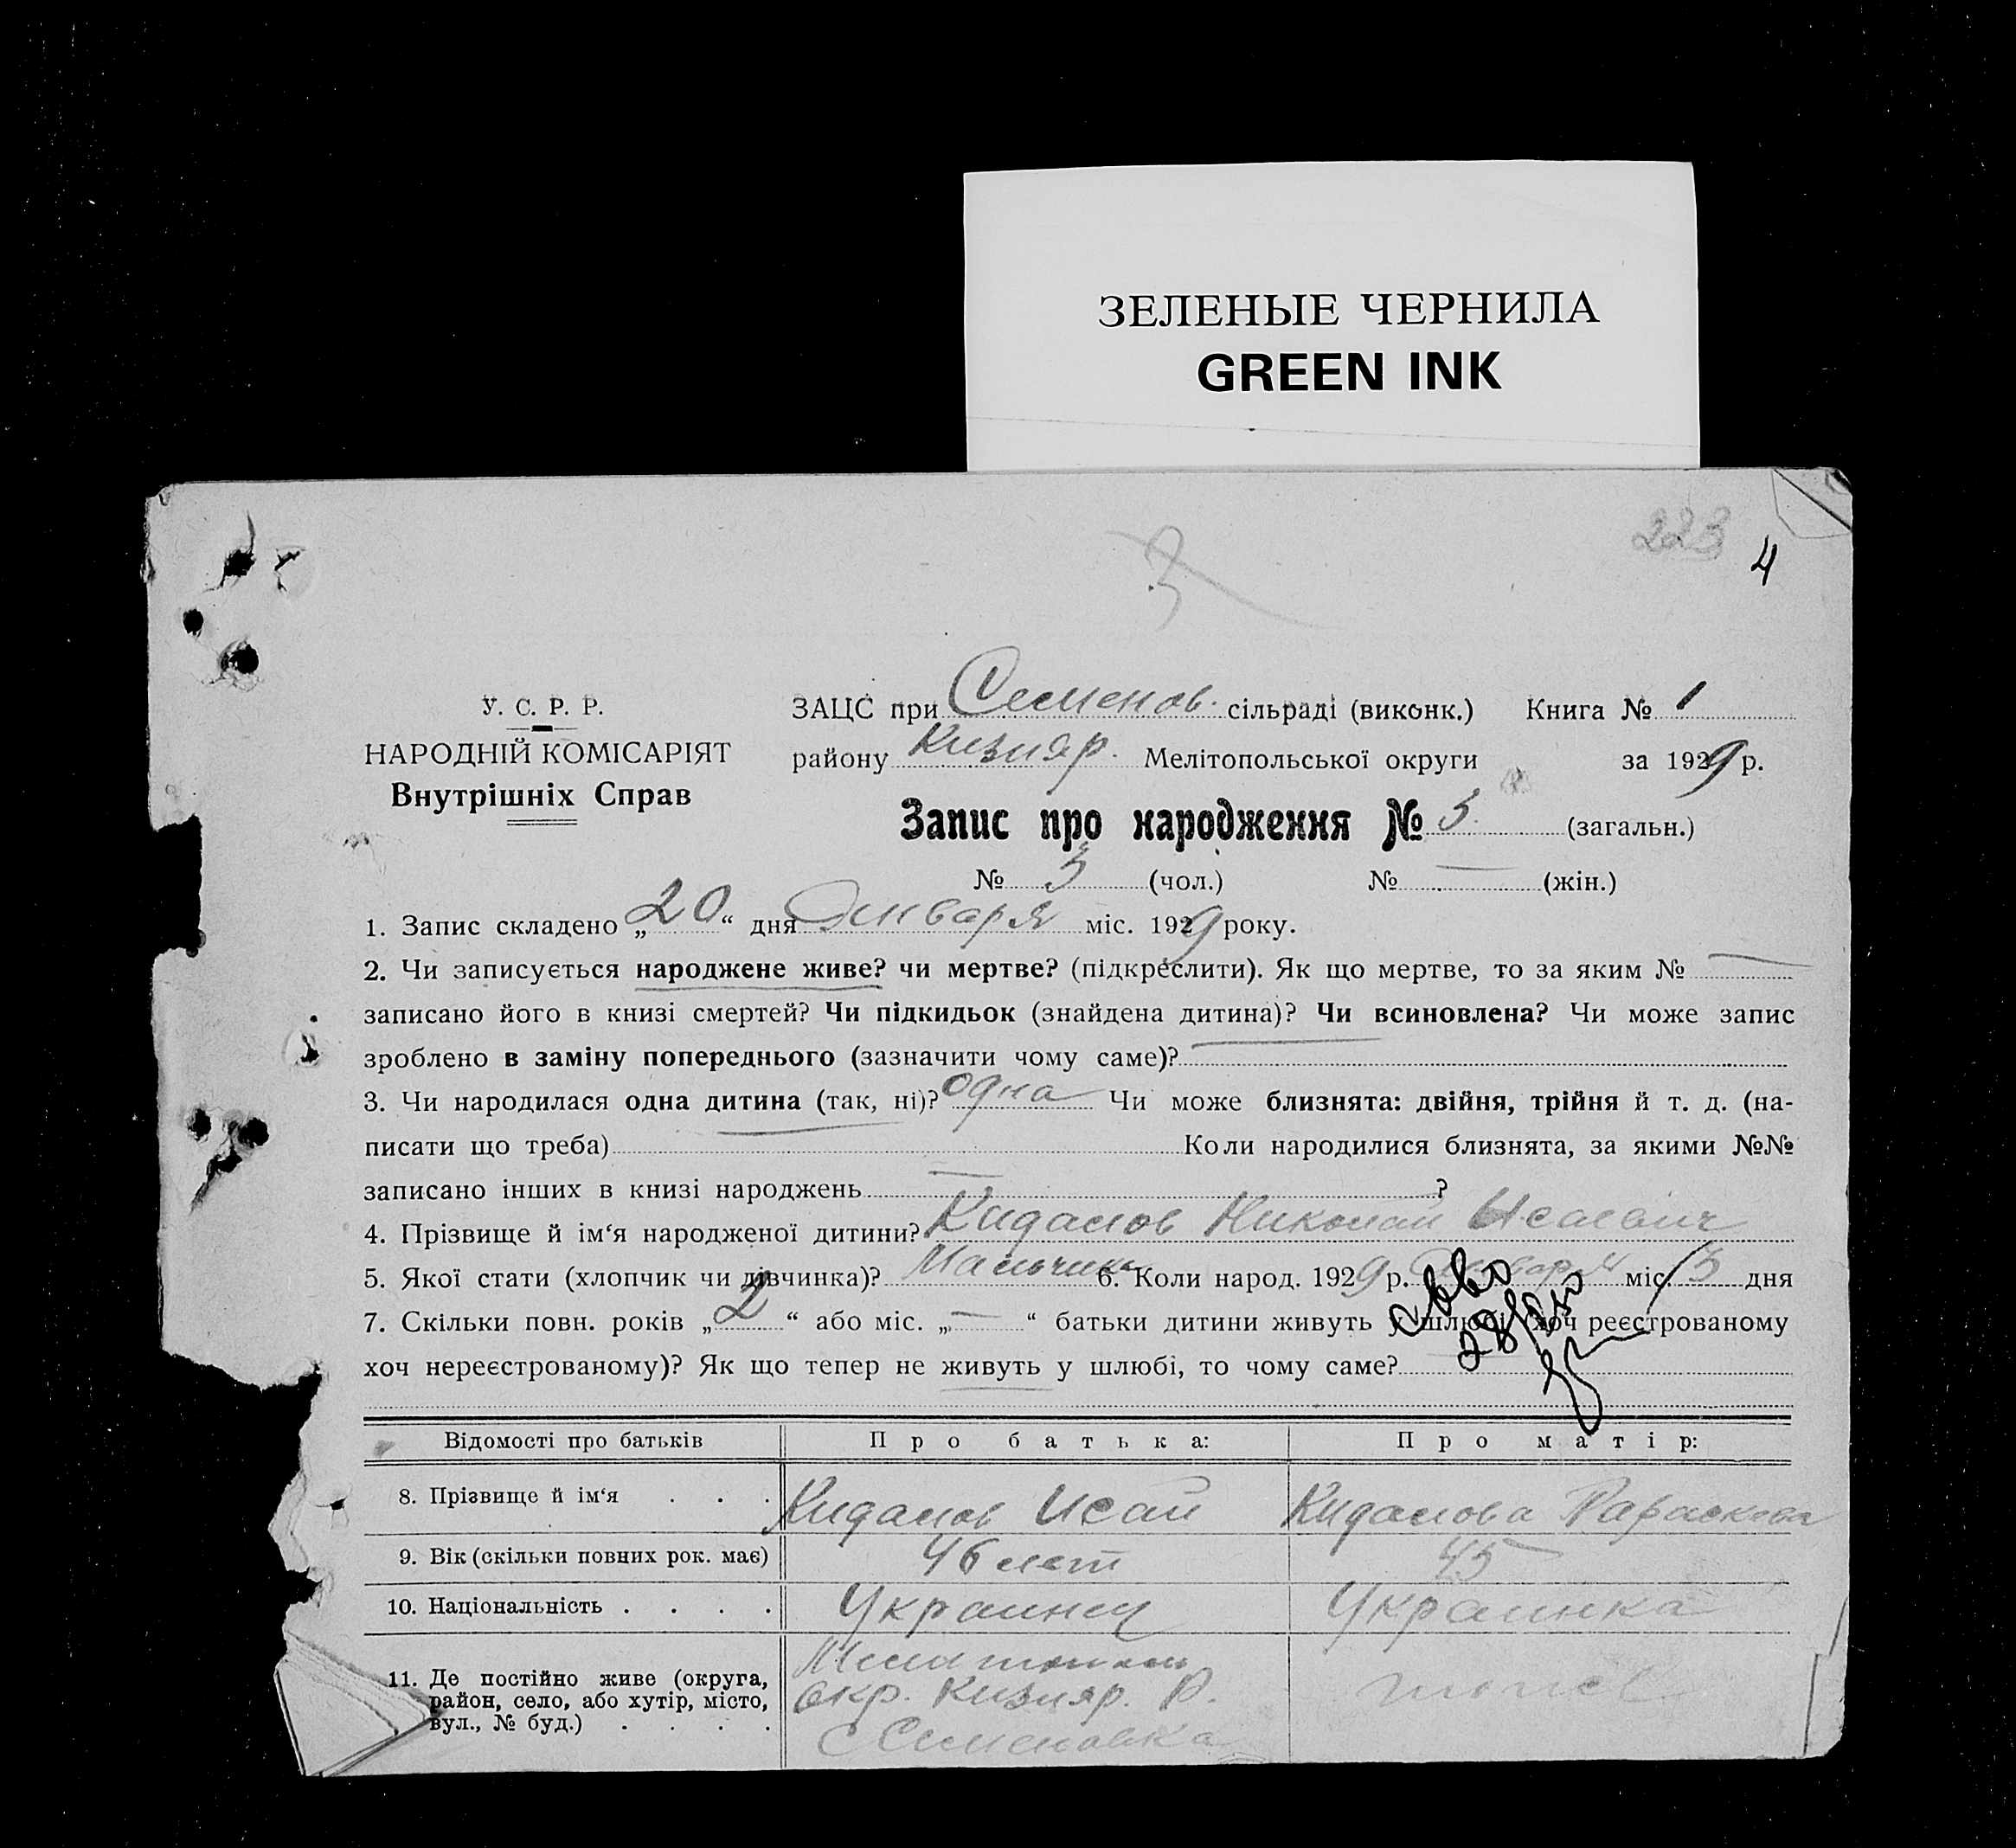 ЗЕЛЕНЫЕ ЧЕРНИЛА
GREEN INK
223 4
3
У. С. Р. Р.
НАРОДНІЙ КОМІСАРІЯТ
Внутрішніх Справ
ЗАЦС при Семенов. сільраді (виконк.) Книга № 1
району Кизияр. Мелітопольської округи за 1929 р.
Запис про народження № 3 (загальн.)
№ 3 (чол.) № — (жін.)
1. Запис складено „20“ дня Января міс. 1929 року.
2. Чи записується народжене живе? чи мертве? (підкреслити). Як що мертве, то за яким № —
записано його в книзі смертей? Чи підкидьок (знайдена дитина)? Чи всиновлена? Чи може запис
зроблено в заміну попереднього (зазначити чому саме)? —
3. Чи народилася одна дитина (так, ні)? одна Чи може близнята: двійня, трійня й т. д. (на-
писати що треба) Коли народилися близнята, за якими №№
записано інших в книзі народжень — ?
4. Прізвище й ім‘я народженої дитини? Кидалов Николай Исаевич
5. Якої стати (хлопчик чи дівчинка)? Мальчик 6. Коли народ. 1929 р. Января міс. 13 дня
7. Скільки повн. років „2“ або міс. „—“ батьки дитини живуть у шлюбі (хоч реєстрованому
хоч нереєстрованому)? Як що тепер не живуть у шлюбі, то чому саме?
Відомості про батьків Про батька: Про матір:
8. Прізвище й ім‘я . . . Кидалов Исай Кидалова Параскева
9. Вік (скільки повних рок. має) 46 лет 45
10. Національність . . . . Украинец Украинка
11. Де постійно живе (округа, район, село, або хутір, місто, вул., № буд.) . . . .
Окр. Кизияр. Р.
с Семеновка
тоже